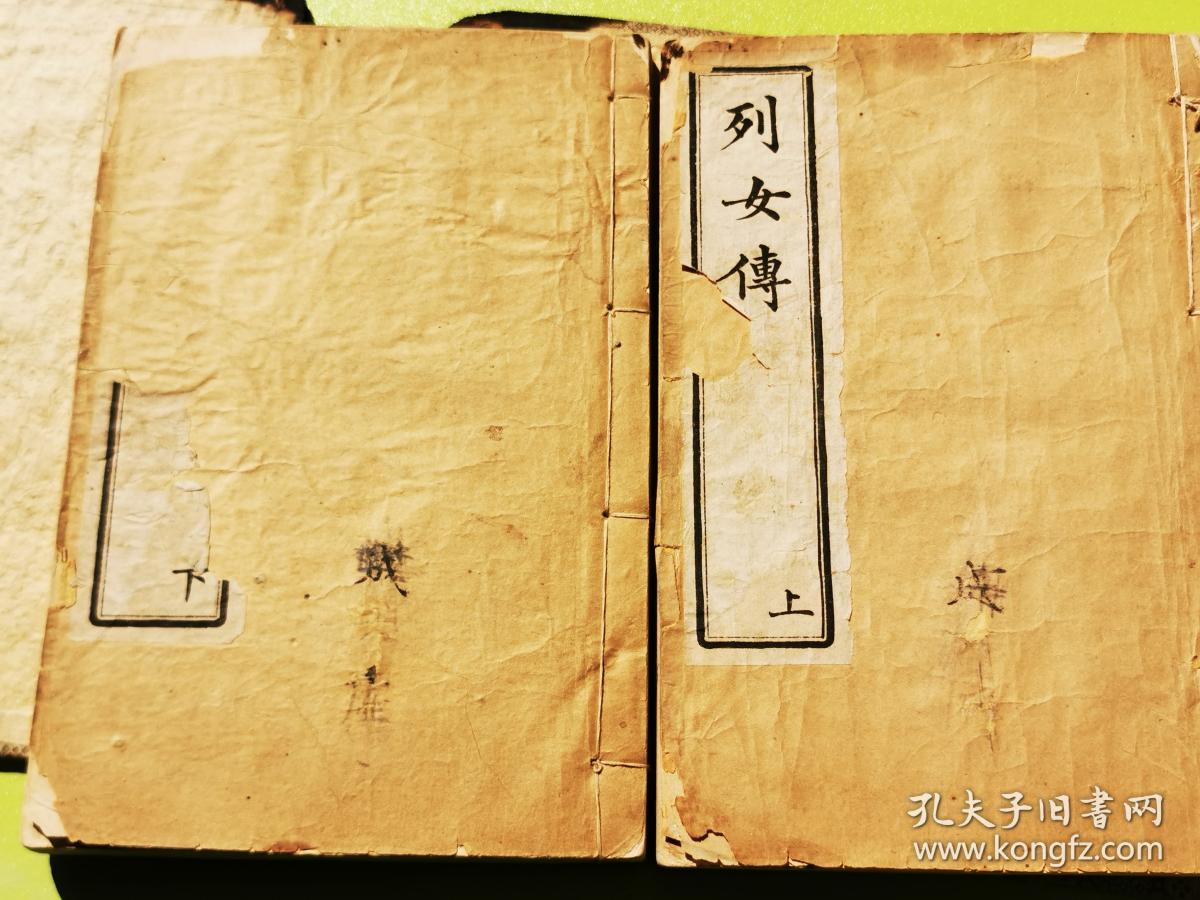 列女傳
上
下
孔夫子旧書网
www.kongfz.com